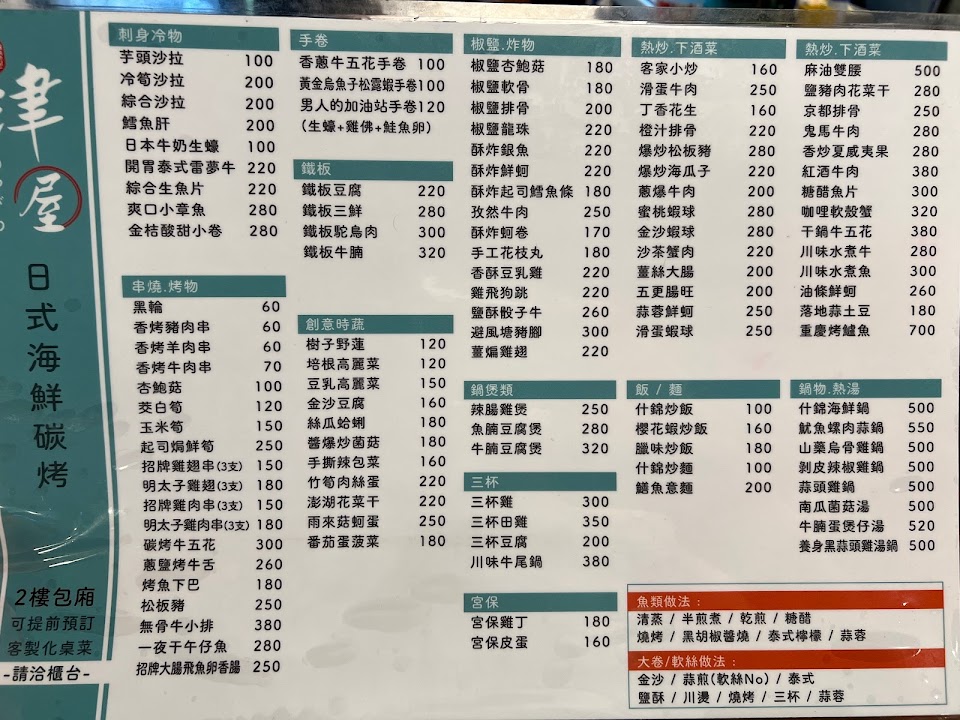 津
屋
日式海鮮碳烤
2樓包廂
可提前預訂
客製化桌菜
-請洽櫃台-
刺身冷物
芋頭沙拉 100
冷筍沙拉 200
綜合沙拉 200
鱈魚肝 200
日本牛奶生蠔 100
開胃泰式雷夢牛 220
綜合生魚片 220
爽口小章魚 280
金桔酸甜小卷 280
串燒.烤物
黑輪 60
香烤豬肉串 60
香烤羊肉串 60
香烤牛肉串 70
杏鮑菇 100
茭白筍 120
玉米筍 150
起司焗鮮筍 250
招牌雞翅串(3支) 150
明太子雞翅(3支) 180
招牌雞肉串(3支) 150
明太子雞肉串(3支) 180
碳烤牛五花 300
蔥鹽烤牛舌 260
烤魚下巴 180
松板豬 250
無骨牛小排 380
一夜干午仔魚 280
招牌大腸飛魚卵香腸 250
手卷
香蔥牛五花手卷 100
黃金烏魚子松露蝦手卷100
男人的加油站手卷120
(生蠔+雞佛+鮭魚卵)
鐵板
鐵板豆腐 220
鐵板三鮮 280
鐵板鴕鳥肉 300
鐵板牛腩 320
創意時蔬
樹子野蓮 120
培根高麗菜 120
豆乳高麗菜 150
金沙豆腐 160
絲瓜蛤蜊 180
醬爆炒菌菇 180
手撕辣包菜 160
竹筍肉絲蛋 220
澎湖花菜干 220
雨來菇蚵蛋 250
番茄蛋菠菜 180
椒鹽.炸物
椒鹽杏鮑菇 180
椒鹽軟骨 180
椒鹽排骨 200
椒鹽龍珠 220
酥炸銀魚 220
酥炸鮮蚵 220
酥炸起司鱈魚條 180
孜然牛肉 250
酥炸蚵卷 170
手工花枝丸 180
香酥豆乳雞 220
雞飛狗跳 220
鹽酥骰子牛 260
避風塘豬腳 300
薑煸雞翅 220
鍋煲類
辣腸雞煲 250
魚腩豆腐煲 280
牛腩豆腐煲 320
三杯
三杯雞 300
三杯田雞 350
三杯豆腐 200
川味牛尾鍋 380
宮保
宮保雞丁 180
宮保皮蛋 160
熱炒.下酒菜
客家小炒 160
滑蛋牛肉 250
丁香花生 160
橙汁排骨 220
爆炒松板豬 280
爆炒海瓜子 220
蔥爆牛肉 200
蜜桃蝦球 280
金沙蝦球 280
沙茶蟹肉 220
薑絲大腸 200
五更腸旺 200
蒜蓉鮮蚵 250
滑蛋蝦球 250
飯 / 麵
什錦炒飯 100
櫻花蝦炒飯 160
臘味炒飯 180
什錦炒麵 100
鱔魚意麵 200
熱炒.下酒菜
麻油雙腰 500
鹽豬肉花菜干 280
京都排骨 250
鬼馬牛肉 280
香炒夏威夷果 280
紅酒牛肉 380
糖醋魚片 300
咖哩軟殼蟹 320
干鍋牛五花 380
川味水煮牛 280
川味水煮魚 300
油條鮮蚵 260
落地蒜土豆 180
重慶烤鱸魚 700
鍋物.熱湯
什錦海鮮鍋 500
魷魚螺肉蒜鍋 550
山藥烏骨雞鍋 500
剝皮辣椒雞鍋 500
蒜頭雞鍋 500
南瓜菌菇湯 500
牛腩蛋煲仔湯 520
養身黑蒜頭雞湯鍋 500
魚類做法:
清蒸 / 半煎煮 / 乾煎 / 糖醋
燒烤 / 黑胡椒醬燒 / 泰式檸檬 / 蒜蓉
大卷/軟絲做法:
金沙 / 蒜煎(軟絲No) / 泰式
鹽酥 / 川燙 / 燒烤 / 三杯 / 蒜蓉